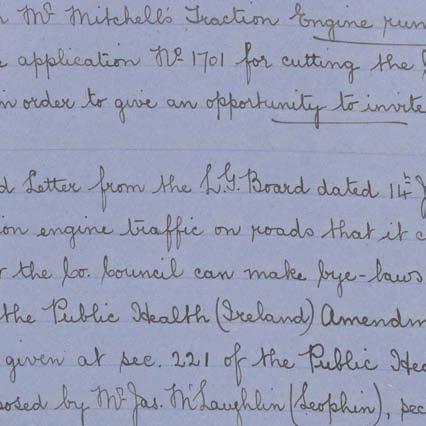 n Mr Mitchell's Traction Engine run
e application No 1701 for cutting the
in order to give an opportunity to invite
d Letter from the L.G. Board dated 14th J
ion engine traffic on roads that it c
r the Co. Council can make bye-laws
the Public Health (Ireland) Amendm
given at sec. 221 of the Public Hea
posed by Mr Jas. McLaughlin (Leophin), sec